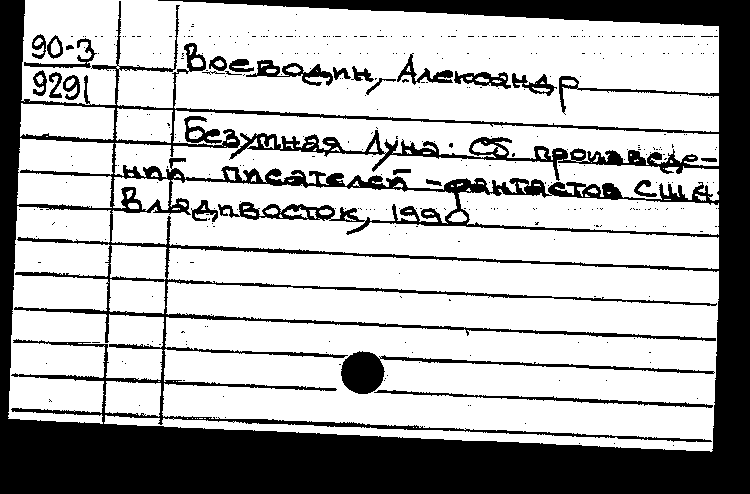 90-3
9291
Воеводин, Александр
Безумная Луна: Сб. произведе-
ний писателей-фантастов США.
Владивосток, 1990